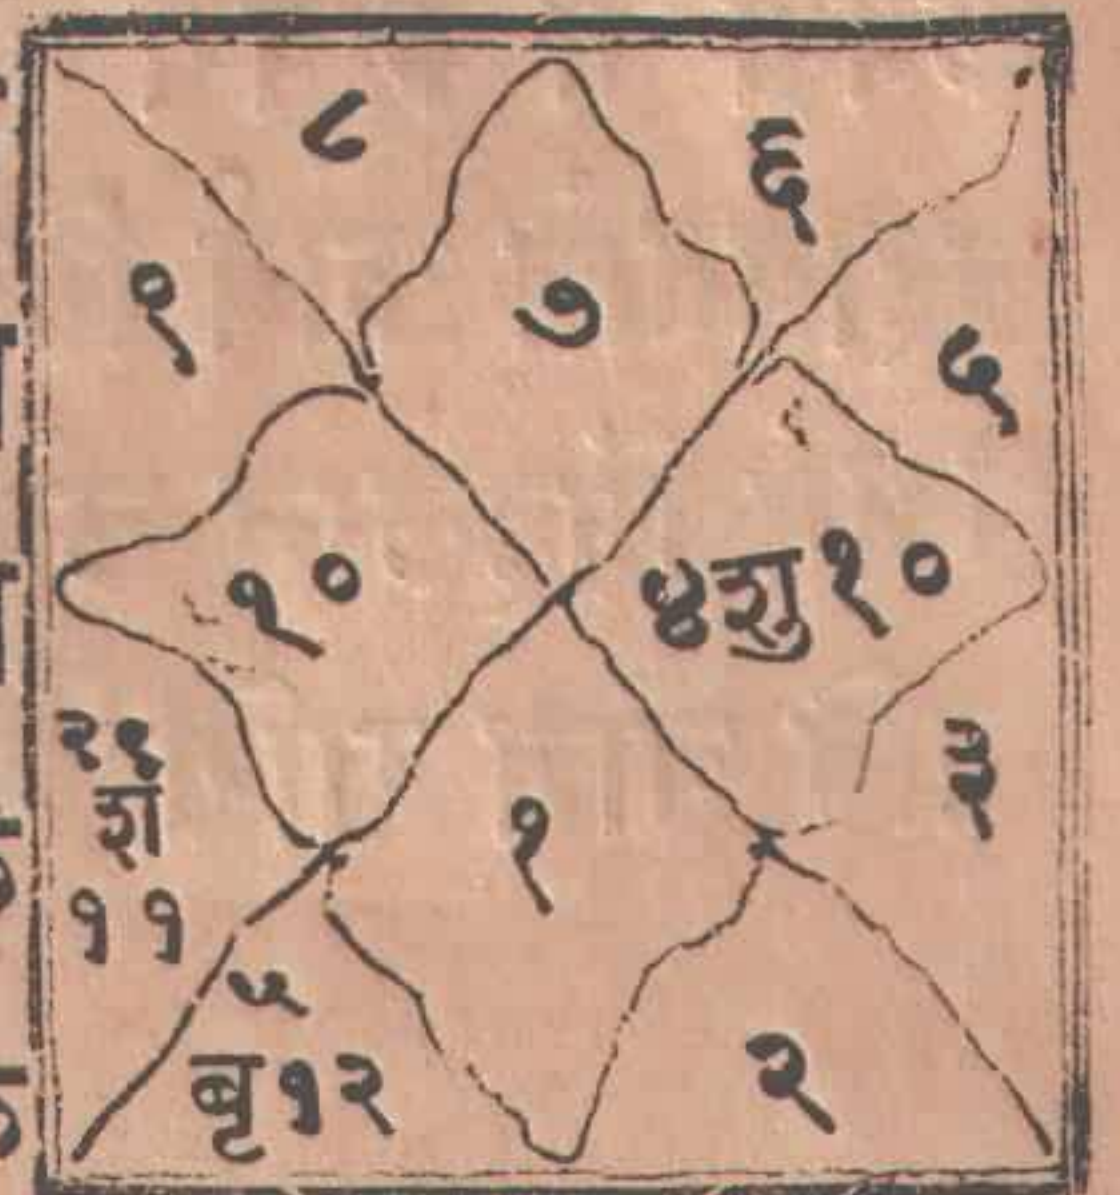 ८
६
७
९
५
१०
४शु१०
२१
श
११
३
१
५
बृ१२
२